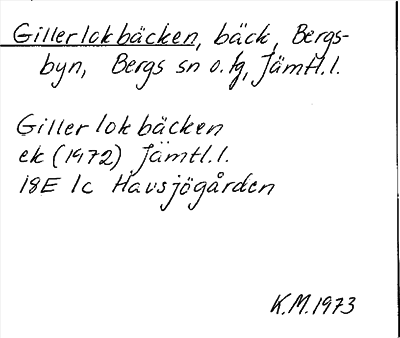 Gillerlokbäcken, bäck, Bergs-
byn, Bergs sn o. fg, Jämtl.l.
Gillerlokbäcken
ek (1972) Jämtl.l.
18E 1c Havsjögården
K.M. 1973